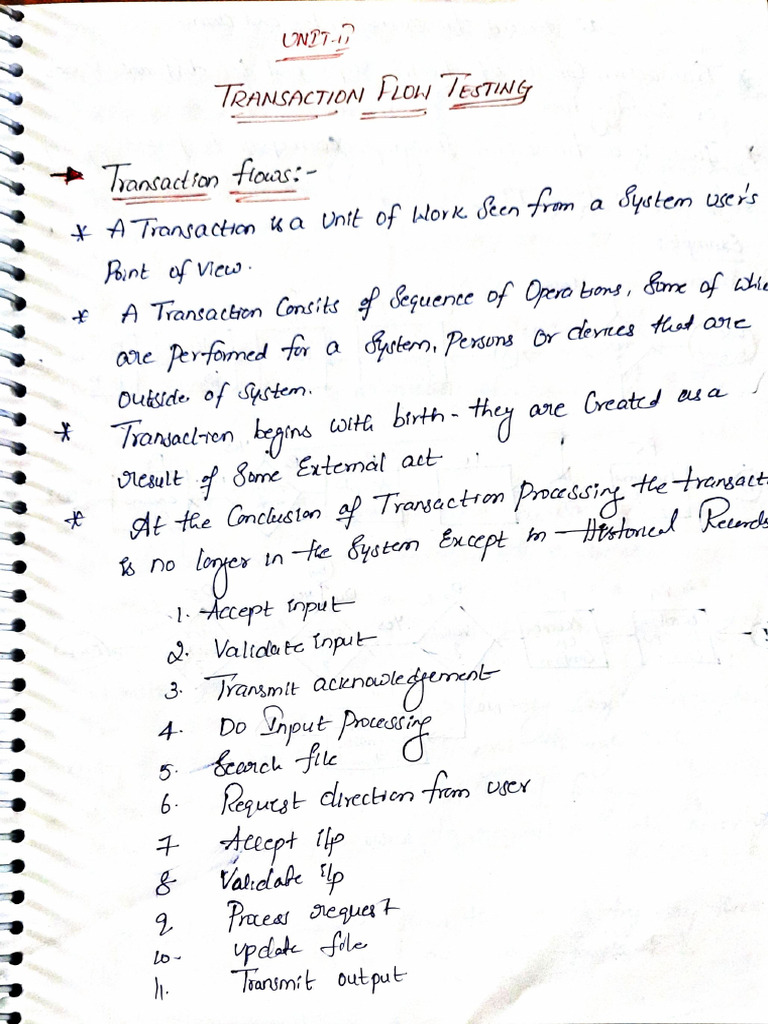 UNIT-II
TRANSACTION FLOW TESTING
→ Transaction flows:-
* A Transaction is a unit of Work Seen from a System user's
Point of View.
* A Transaction Consits of Sequence of Operations, Some of whic
are performed for a System, Persons Or devices that are
outside of System.
* Transaction begins with birth - they are Created as a
result of Some External act
* At the Conclusion of Transaction Processing the transact
is no longer in the System Except in Historical Records
1. Accept input
2. Validate input
3. Transmit acknowledgement
4. Do Input Processing
5. Search file
6. Request direction from user
7 Accept i/p
8 Validate i/p
9 Process request
10- update file
11. Transmit output